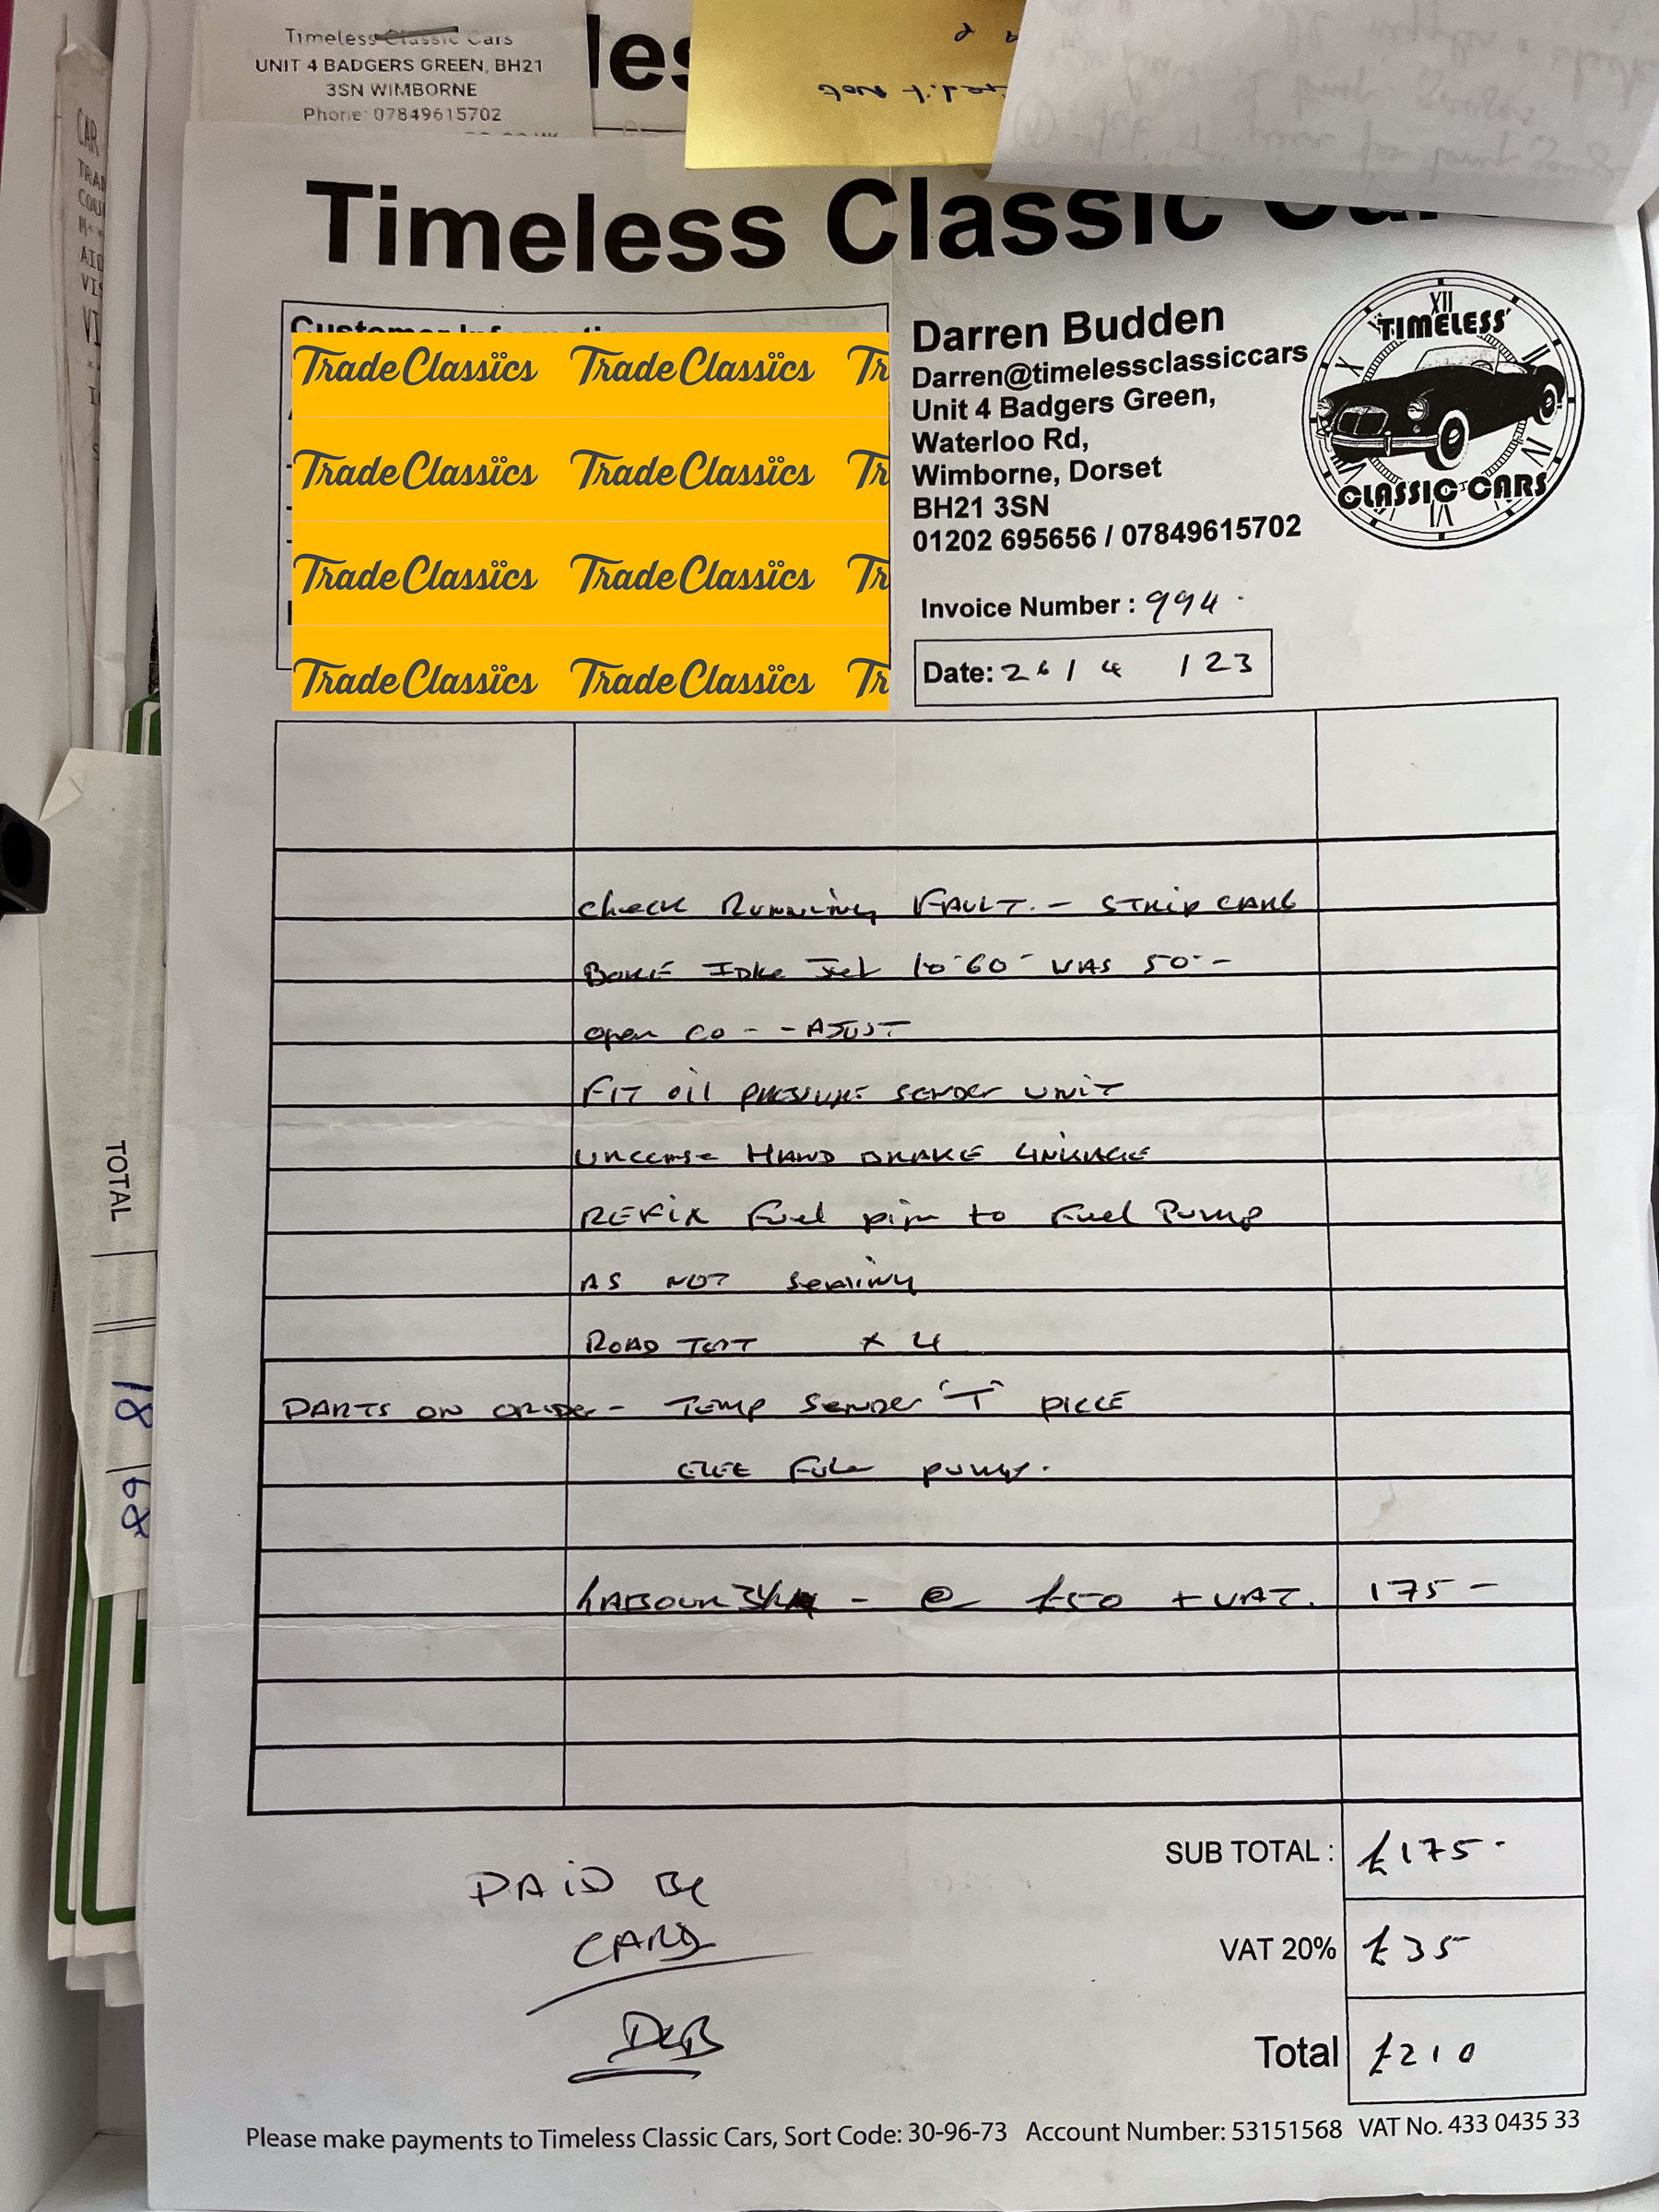 Timeless Classic Cars
UNIT 4 BADGERS GREEN, BH21
3SN WIMBORNE
Phone: 07849615702
les
CAR
Timeless Classic Cars
Customer Information
TradeClassics TradeClassics Tr
TradeClassics TradeClassics Tr
TradeClassics TradeClassics Tr
TradeClassics TradeClassics Tr
Darren Budden
Darren@timelessclassiccars
Unit 4 Badgers Green,
Waterloo Rd,
Wimborne, Dorset
BH21 3SN
01202 695656 / 07849615702
XII
'TIMELESS'
CLASSIC CARS
Invoice Number : 994
Date: 26 / 4 / 23
CHECK RUNNING FAULT. - STRIP CARB
BORE IDLE JET TO .60 - WAS 50 -
open CO - - AJUST
FIT OIL PRESSURE SENDER UNIT
HAND BRAKE LINKAGE
REFIX Fuel pipe to Fuel Pump
AS NOT Sealing
ROAD TEST x 4
PARTS ON ORDER - TEMP SENDER 'T' PIECE
ELEC FUEL PUMP.
LABOUR - @ £50 + VAT. 175 -
SUB TOTAL : £175 -
VAT 20% £35
Total £210
PAID By
CARD
DCB
TOTAL
18 68
Please make payments to Timeless Classic Cars, Sort Code: 30-96-73 Account Number: 53151568 VAT No. 433 0435 33